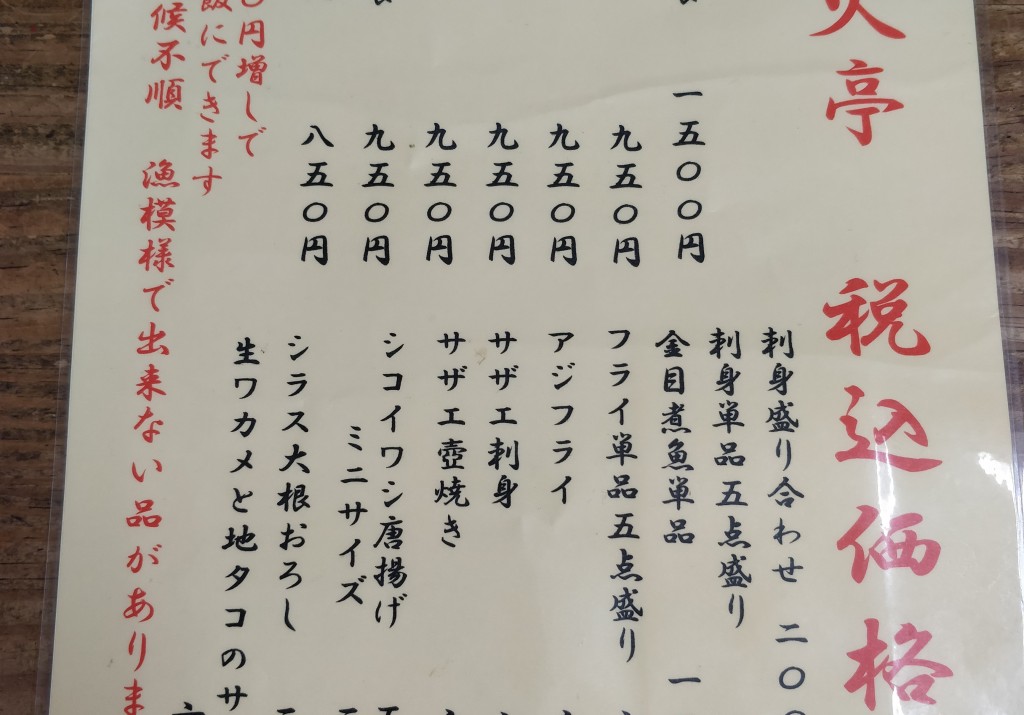 亭 税込価格
一五〇〇円
九五〇円
九五〇円
九五〇円
九五〇円
九五〇円
八五〇円
刺身盛り合わせ 二〇
刺身単品五点盛り
金目煮魚単品 一
フライ単品五点盛り
アジフライ
サザエ刺身
サザエ壺焼き
シコイワシ唐揚げ
ミニサイズ
シラス大根おろし
生ワカメと地タコのサ
円増しで
飯にできます
候不順 漁模様で出来ない品がありま